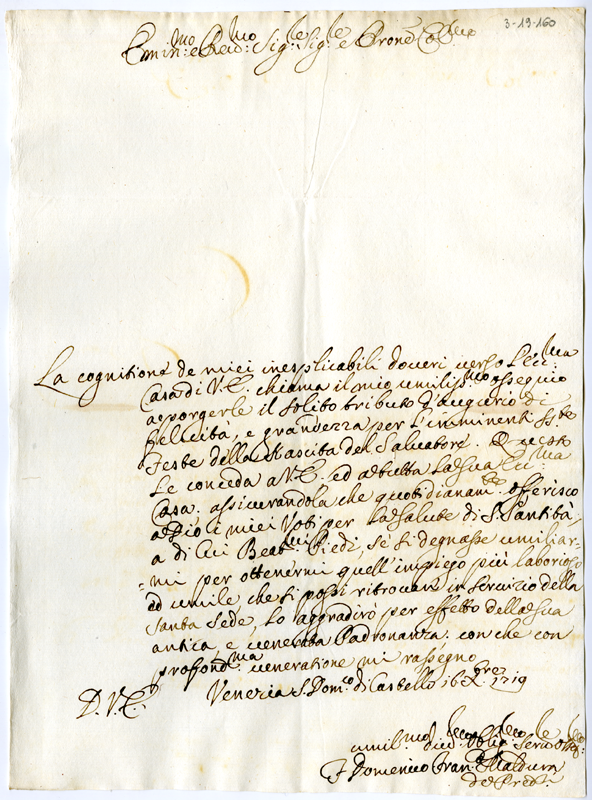 3-19-160
Emin:mo e Reu:mo Sig:le Sig:le e Prone Col:mo
La cognitione de miei inesplicabili doueri uerso l'ecc:ma
Casa di V.E. chiama il mio umilis:mo ossequio
a porgerle il solito tributo d'augurio di
felicità, e grandezza per l'imminenti SS:te
Feste della Nascita del Saluatore. Questo
Le conceda a V.E. ed a tutta la sua Ecc:ma
Casa. assicurandola che quotidianam:te offerisco
a Dio i miei Voti per la salute di S. Santità,
a di Cui Beat:mi Piedi, se si degnasse umiliar-
-mi per ottenermi quell'impiego più laborioso
ed umile che si possi ritrouare in seruizio della
Santa Sede, lo aggradirò per effetto della sua
antica, e uenerata Padronanza. con che con
profond:ma ueneratione mi rassegno
D. V. E. Venezia S. Dom:co di Castello 16 X:bre 1719
umil:mo diu:mo oblig:mo Seruo
F Domenico Fran:co Maldura
de Pred:i